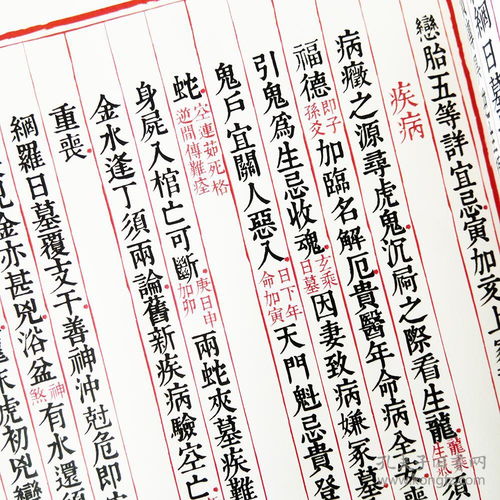 網日墓
戀胎五等詳宜忌寅加亥上
疾病
病癥之源尋虎鬼沉屙之際看生龍龍乘生
福德即子孫爻加臨名解厄貴醫年命病全
引鬼爲生忌收魂玄乘日墓因妻致病嫌冢墓
鬼戶宜關人惡入日下年命加寅天門魁忌貴登
蛇空連茹死格遊間傳難痊
身屍入棺亡可斷庚日申加卯兩蛇夾墓疾難
金水逢丁須兩論舊新疾病驗空亡
重喪
網羅日墓覆支干善神沖尅危即
金亦甚兇浴盆神煞有水還
末虎初兇變